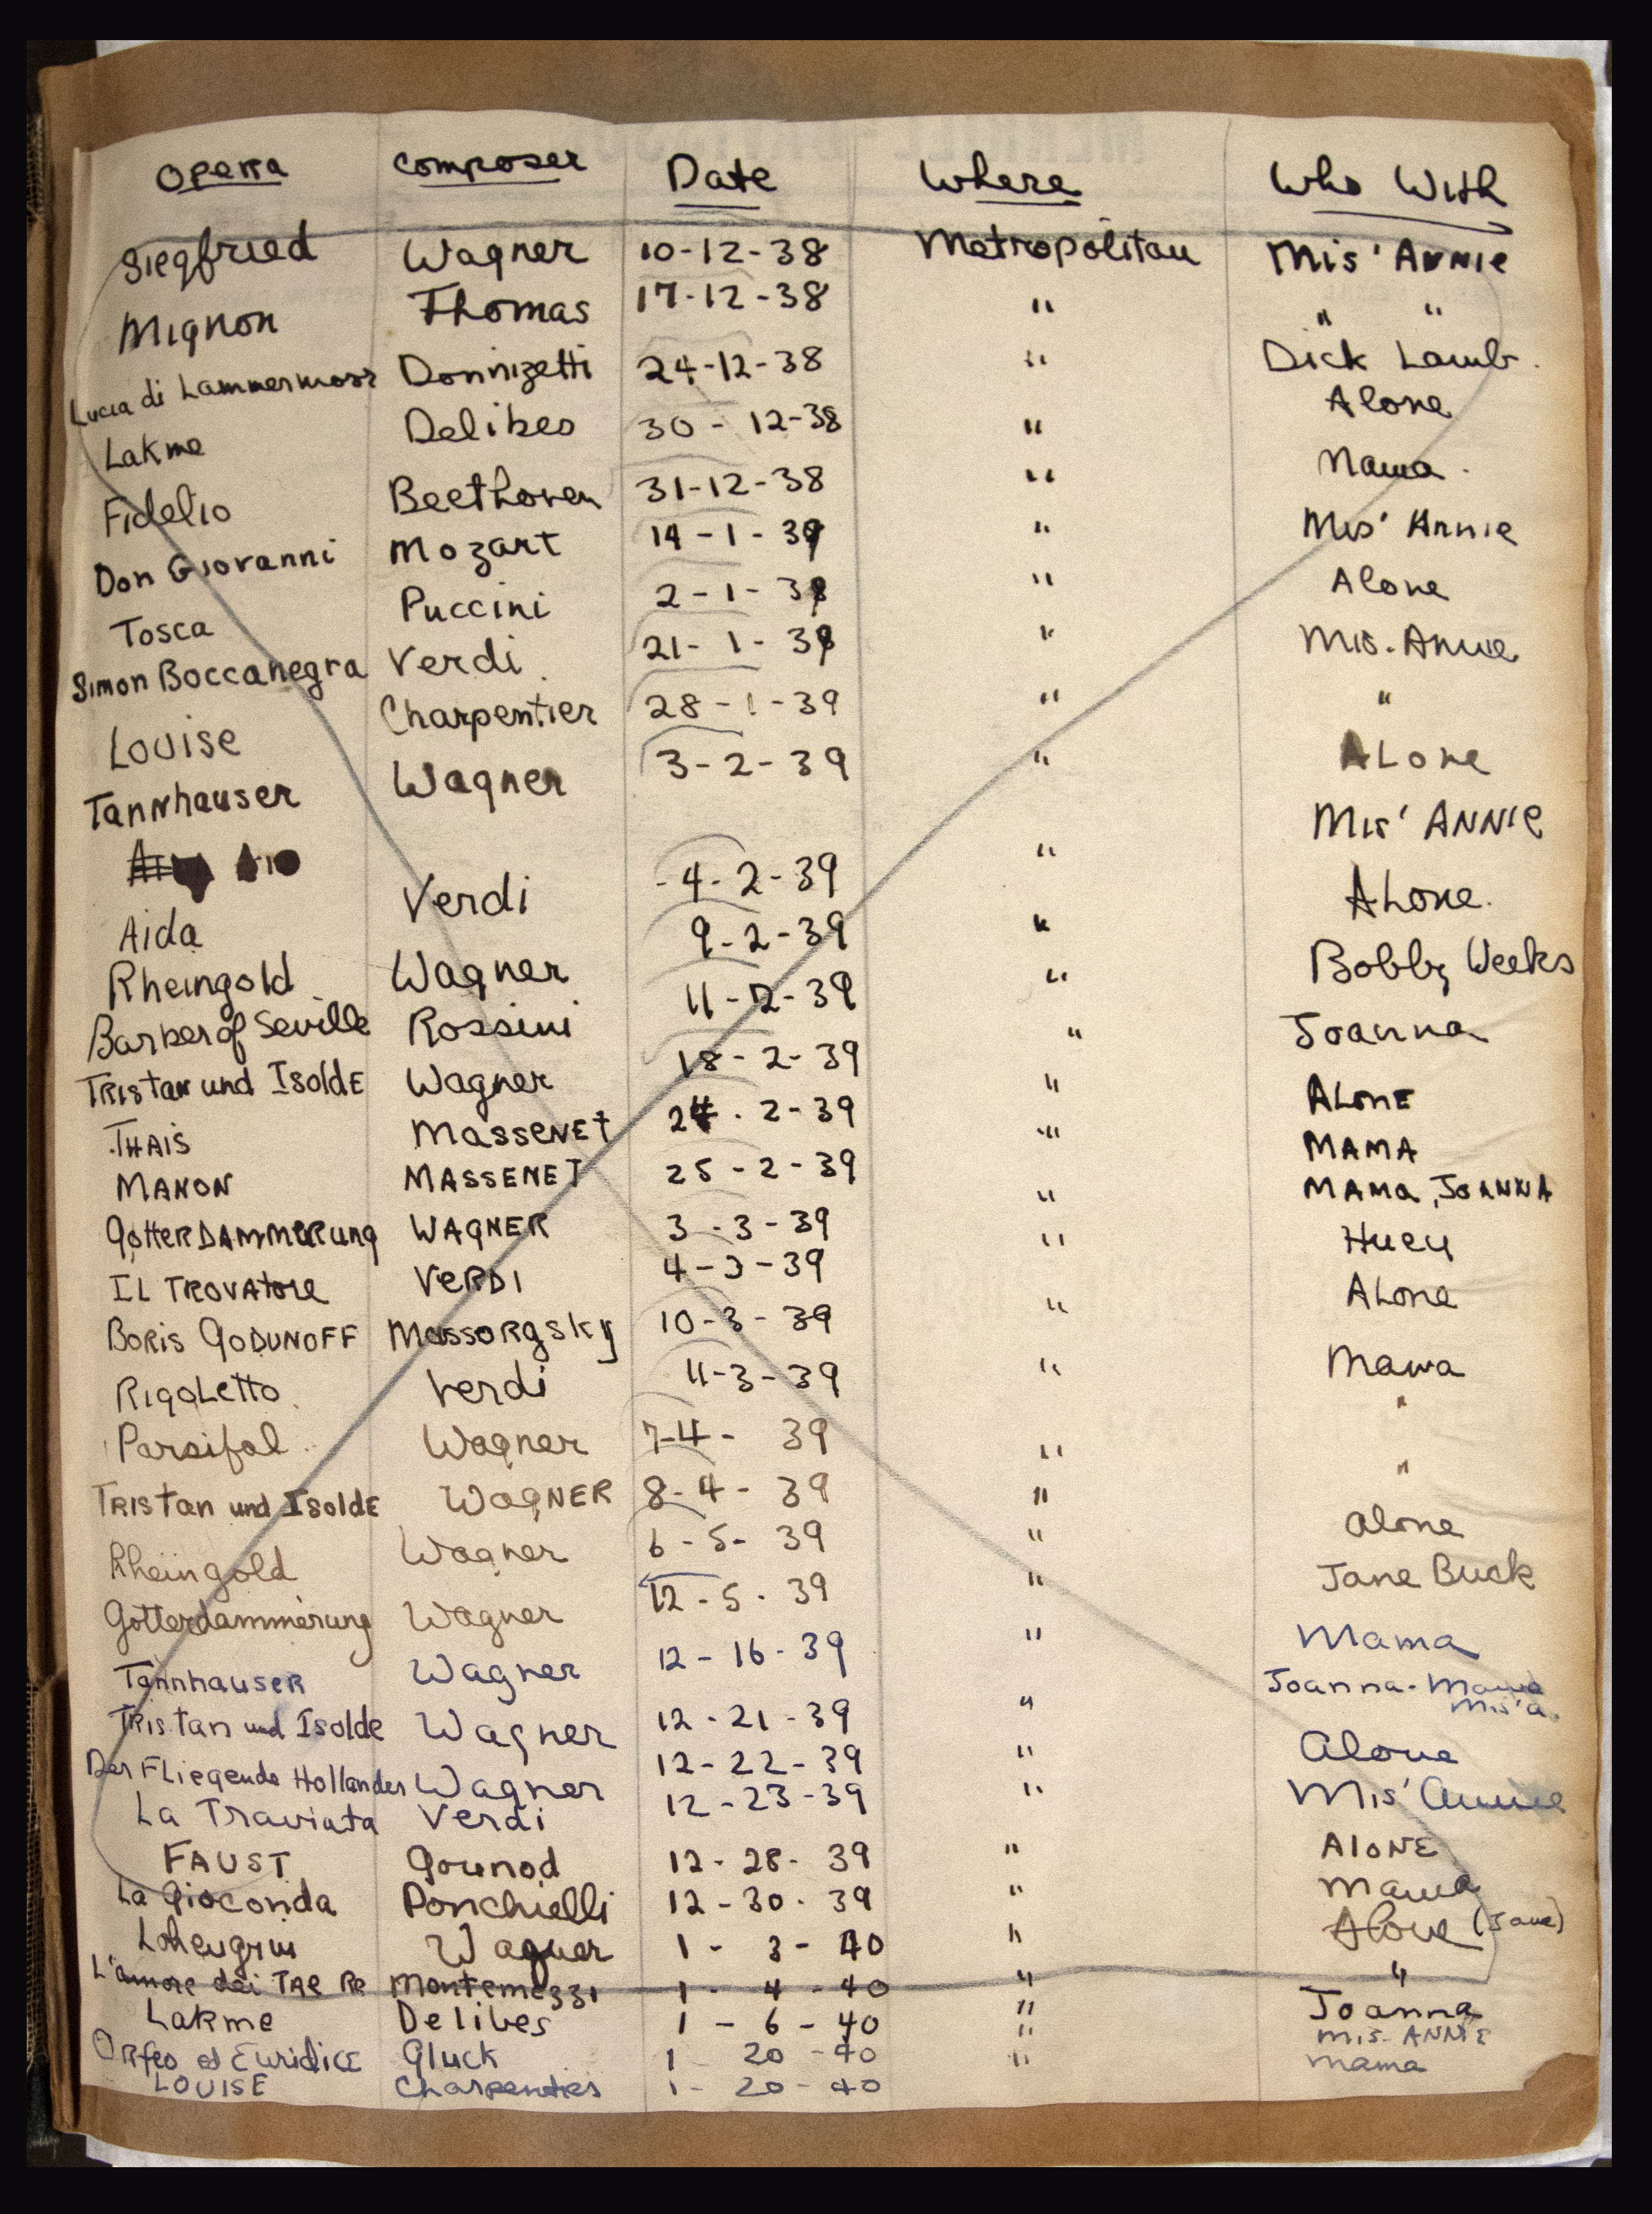 Opera Composer Date Where Who With
Siegfried Wagner 10-12-38 Metropolitan Mis' Annie
Mignon Thomas 17-12-38 " " "
Lucia di Lammermoor Donnizetti 24-12-38 " Dick Lamb.
Lakme Delibes 30-12-38 " Alone
Fidelio Beethoven 31-12-38 " Mama.
Don Giovanni Mozart 14-1-39 " Mis' Annie
Tosca Puccini 2-1-39 " Alone
Simon Boccanegra Verdi 21-1-39 " Mis. Annie
Louise Charpentier 28-1-39 " "
Tannhauser Wagner 3-2-39 " ALone
Aida Verdi -4-2-39 " Mis' ANNIE
Rheingold Wagner 9-2-39 " ALone.
Barber of Seville Rossini 11-2-39 " Bobby Weeks
Tristan und Isolde Wagner 18-2-39 " Joanna
THAIS Massenet 24.2-39 " ALONE
MANON MASSENET 25-2-39 " MAMA
GötterDAMMERung WAGNER 3-3-39 " MAMa, JOANNA
IL TROVAtore VeRDI 4-3-39 " Huey
BORIS GODUNOFF Mossorgsky 10-3-39 " ALone
RigoLetto Verdi 11-3-39 " Mama
Parsifal Wagner 7-4-39 " "
Tristan und Isolde WagNER 8-4-39 " "
Rheingold Wagner 6-5-39 " alone
Gotterdammerung Wagner 12-5-39 " Jane Buck
Tannhauser Wagner 12-16-39 " Mama
Tristan und Isolde Wagner 12-21-39 " Joanna-Mama
Mis'a.
Der FLiegende Hollander Wagner 12-22-39 " Alone
La Traviata Verdi 12-23-39 " Mis' Annie
FAUST Gounod 12-28-39 " AloNE
La Gioconda Ponchielli 12-30-39 " Mama
Lohengrin Wagner 1-3-40 " Alone (Jane)
L'amore dei Tre Re Montemezzi 1-4-40 " "
Lakme Delibes 1-6-40 " Joanna
Orfeo et Euridice Gluck 1-20-40 " Mis-ANNIE
LOUISE Charpentier 1-20-40 " mama